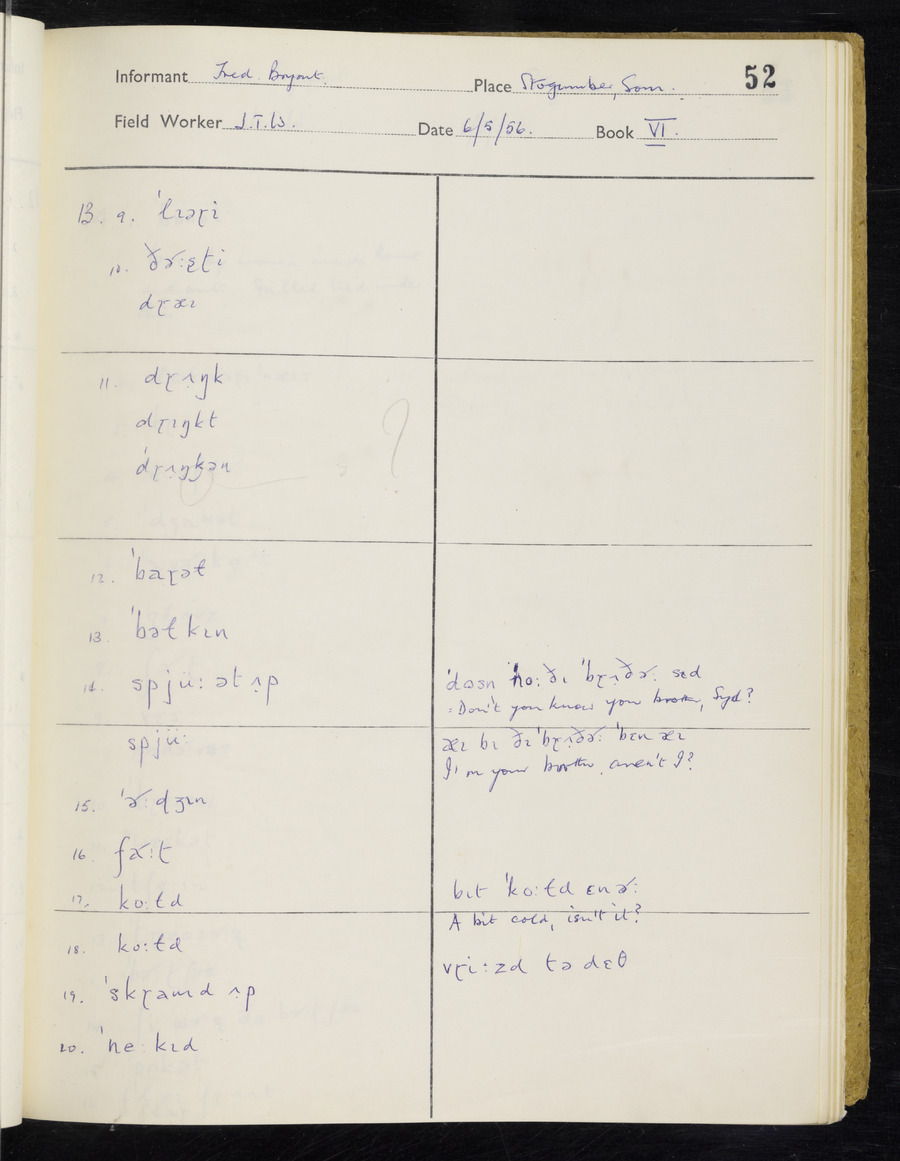 Informant Fred. Bryant.
Place Stogumber, Som.
52
Field Worker J.T.W.
Date 6/5/56.
Book VI.
13. 9. ˈlɪəɽi
10. ðɚ:ʂʈi
dɽæɪ
11. dɽʌ̣ŋk
dɽɪŋkt
ˈdɽʌ̣ŋkən
?
12. ˈbaɽəɫ
13. ˈbəɫkɪn
14. spjü: ət ʌ̣p
ˈdəsn ˈno: ðɪ ˈbɽʌ̣ðɚ: sɪd
= Don't you know you brother, Syd?
spjü:
æɪ bɪ ðɪ ˈbɽʌ̣ðɚ: ˈbɛn æɪ
I'm your brother, aren't I?
15. ˈɚ:ɖʒɪn
16. fɚ:ʈ
17. ko:ɫd
bɪt ˈko:ɫd ɛn ɚ:
A bit cold, isn't it?
18. ko:ɫd
vɽi:zd tə dɛθ
19. ˈskɽamd ʌ̣p
20. ˈne:kɪd